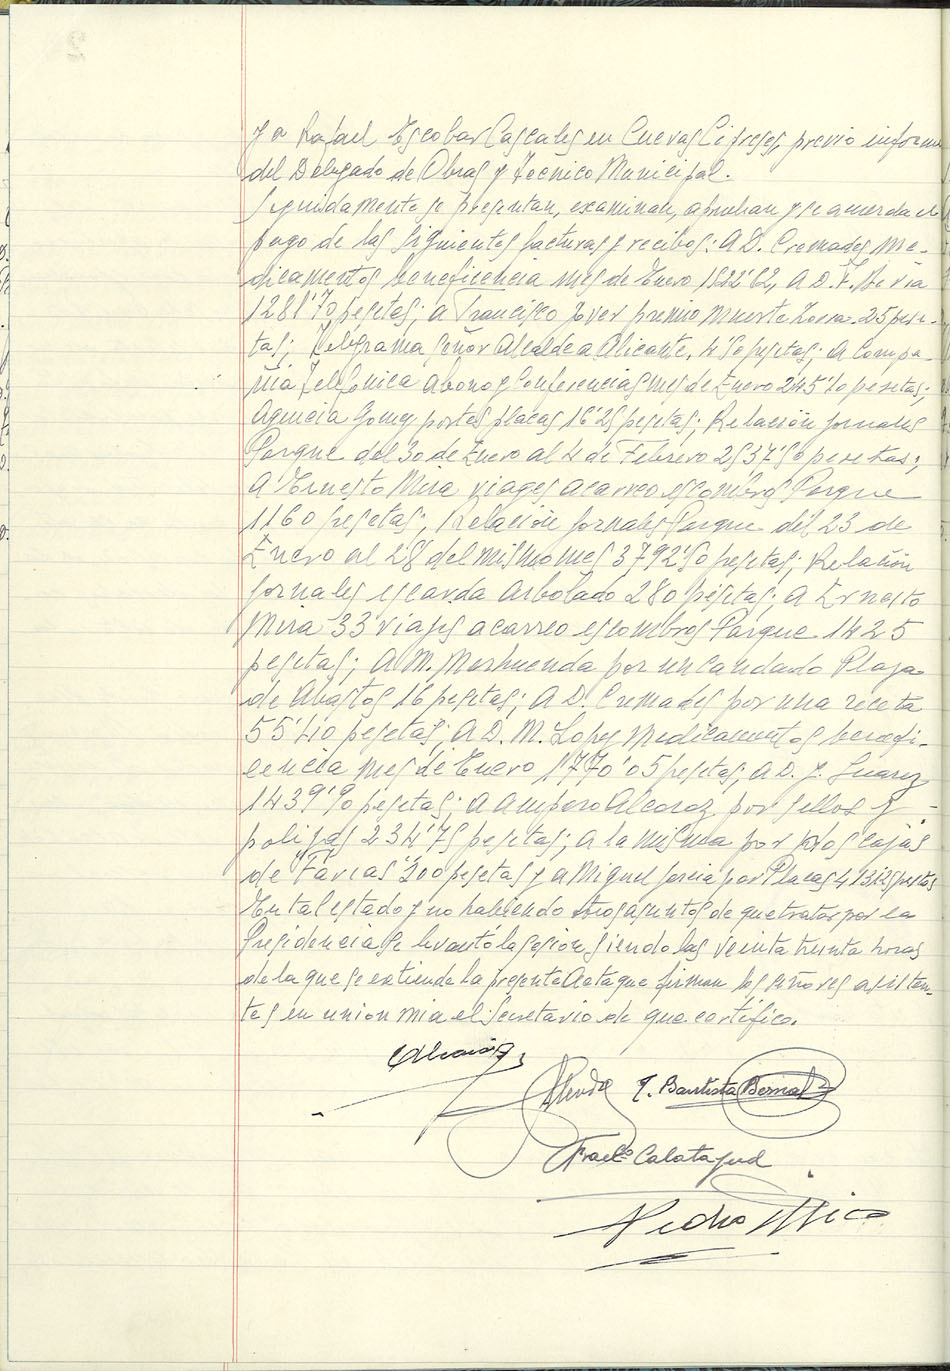 y a Rafael Escobar Cascales en Cuevas Cifreses, previo informe
del Delegado de Obras y Tecnico Municipal.
Seguidamente se presentan, examinan, aprueban y se acuerda el
pago de las siguientes facturas y recibos: A D. Cremades Me-
dicamentos beneficencia mes de Enero, 1822'62, A D. F.
1281'70 pesetas; a Francisco Jover premio Muerte Zorra 25 pese-
tas; Telegrama señor Alcalde a Alicante, 4'50 pesetas; A Compa-
ñia Telefonica abono y Conferencias mes de Enero 245'10 pesetas;
Agencia Gomez portes placas 16'25 pesetas; Relación jornales
Parque del 30 de Enero al 4 de Febrero 2537'50 pesetas;
A Ernesto Mira viages acarreo escombros Parque
1160 pesetas; Relación jornales Parque del 23 de
Enero al 28 del mismo mes 3792'50 pesetas; Relación
jornales escarda arbolado 280 pesetas; A Ernesto
Mira 33 viajes acarreo escombros Parque 1425
pesetas; A M. Marhuenda por un candado Plaza
de Abastos 16 pesetas; A D. Cremades por una receta
55'40 pesetas; A D. M. Lopez Medicamentos benefi-
cencia mes de Enero 1770'05 pesetas; A D. J. Suarez
1439'90 pesetas; a Amparo Alcaraz por sellos y
polizas 234'75 pesetas; a la misma por dos cajas
de Farias 300 pesetas y a Miguel Garcia por Placas 413'25 pesetas
En tal estado y no habiendo otros asuntos de que tratar por la
Presidencia se levantó la sesion siendo las veinte treinta horas
de la que se extiende la presente Acta que firman los señores asisten-
tes en union mia el Secretario de que certifico.
J. Bautista Bernal
Franco Calatayud
Pedro Mico